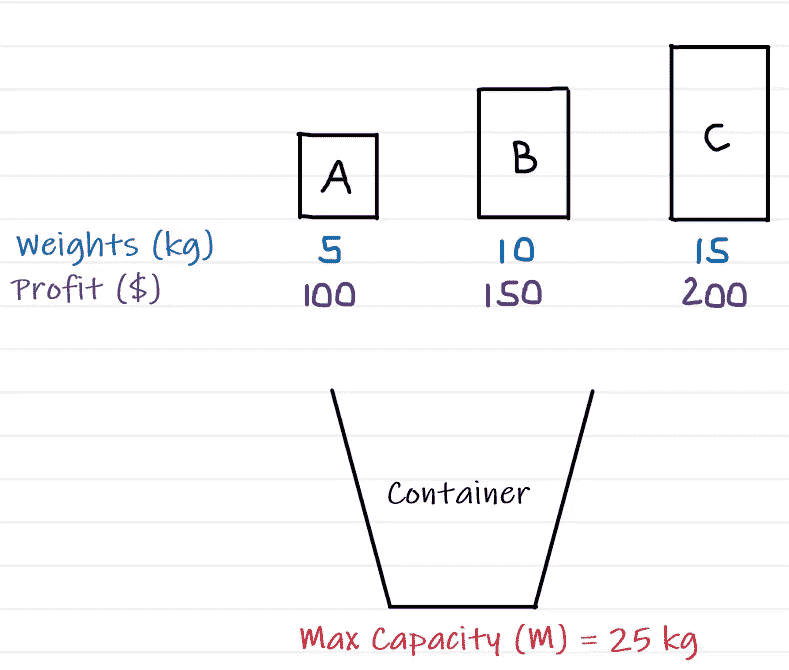 A B C
Weights (kg) 5 10 15
Profit ($) 100 150 200
Container
Max Capacity (M) = 25 kg